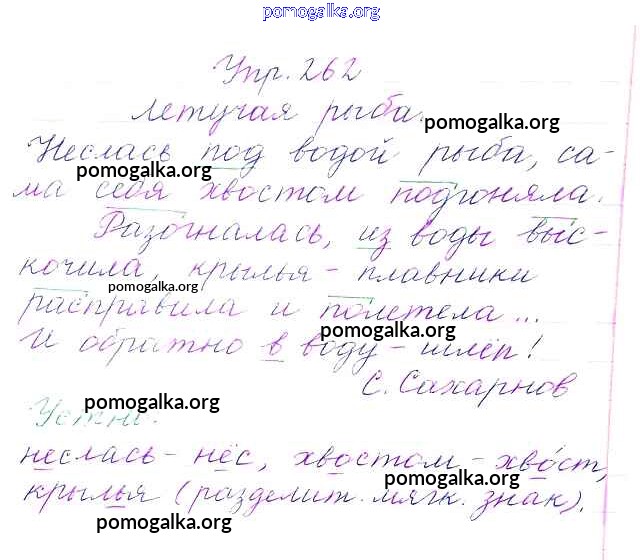 pomogalka.org
Упр. 262
Летучая рыба.
pomogalka.org
Неслась под водой рыба, са-
pomogalka.org
ма себя хвостом подгоняла.
Разогналась, из воды выс-
кочила, крылья - плавники
pomogalka.org
расправила и полетела...
pomogalka.org
И обратно в воду - шлёп!
С. Сахарнов
pomogalka.org
Устно.
неслась - нёс, хвостом - хвост,
pomogalka.org
крылья (разделит. мягк. знак).
pomogalka.org